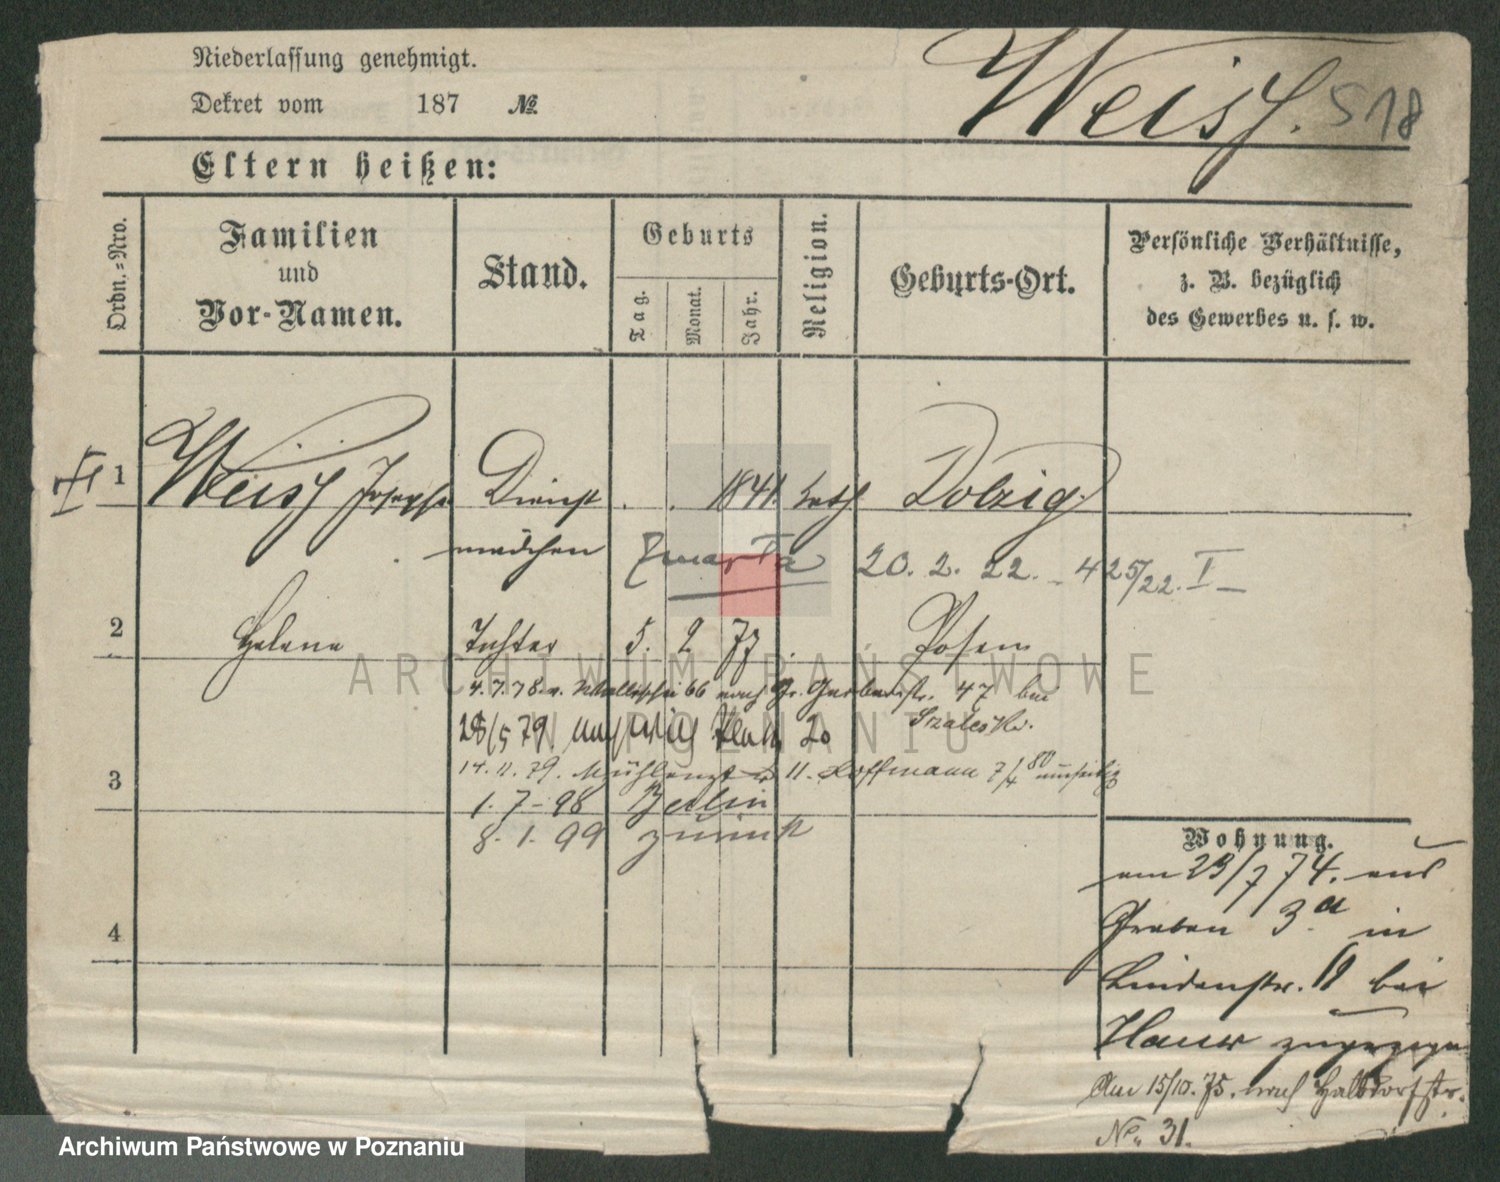 Niederlassung genehmigt.
Dekret vom 187 №
Weiss. 518
Eltern heißen:
Ordn.=Nro.
Familien
und
Vor-Namen.
Stand.
Geburts
Tag.
Monat.
Jahr.
Religion.
Geburts-Ort.
Persönliche Verhältnisse,
z. B. bezüglich
des Gewerbes u. s. w.
1 Weiss Josepha Dienst . . 1841. kath Dolzig
mädchen zmarła 20. 2. 22. - 425/22. I -
2 Helene Tochter 5. 2 77 . Posen
4.7.78. v. Wallischei 66 nach Gr. Gerberstr. 47 bei
28/5 79. 20
3 14. 11. 79. 11. Hoffmann 7/4 80 umseitig
1. 7 - 98 Berlin
8. 1. 99 zurück
4
Wohnung.
am 23/7 74. aus
Graben 3.a in
Lindenstr. bei
zugezogen
Am 15/10. 75. nach Halbdorfstr.
No. 31.
ARCHIWUM PAŃSTWOWE
W POZNANIU
Archiwum Państwowe w Poznaniu